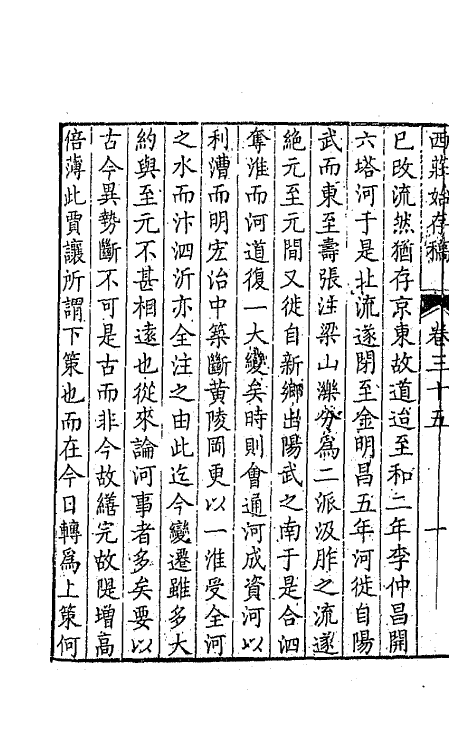 西莊始存稿 卷三十五 一
已改流然猶存京東故道迨至和二年李仲昌開
六塔河于是北流遂閉至金明昌五年河徙自陽
武而東至壽張注梁山濼分爲二派汲胙之流遂
絶元至元間又徙自新鄉出陽武之南于是合泗
奪淮而河道復一大變矣時則會通河成資河以
利漕而明宏治中築斷黄陵岡更以一淮受全河
之水而汴泗沂亦全注之由此迄今變遷雖多大
約與至元不甚相遠也從來論河事者多矣要以
古今異勢斷不可是古而非今故繕完故隄增高
倍薄此賈讓所謂下策也而在今日轉爲上策何